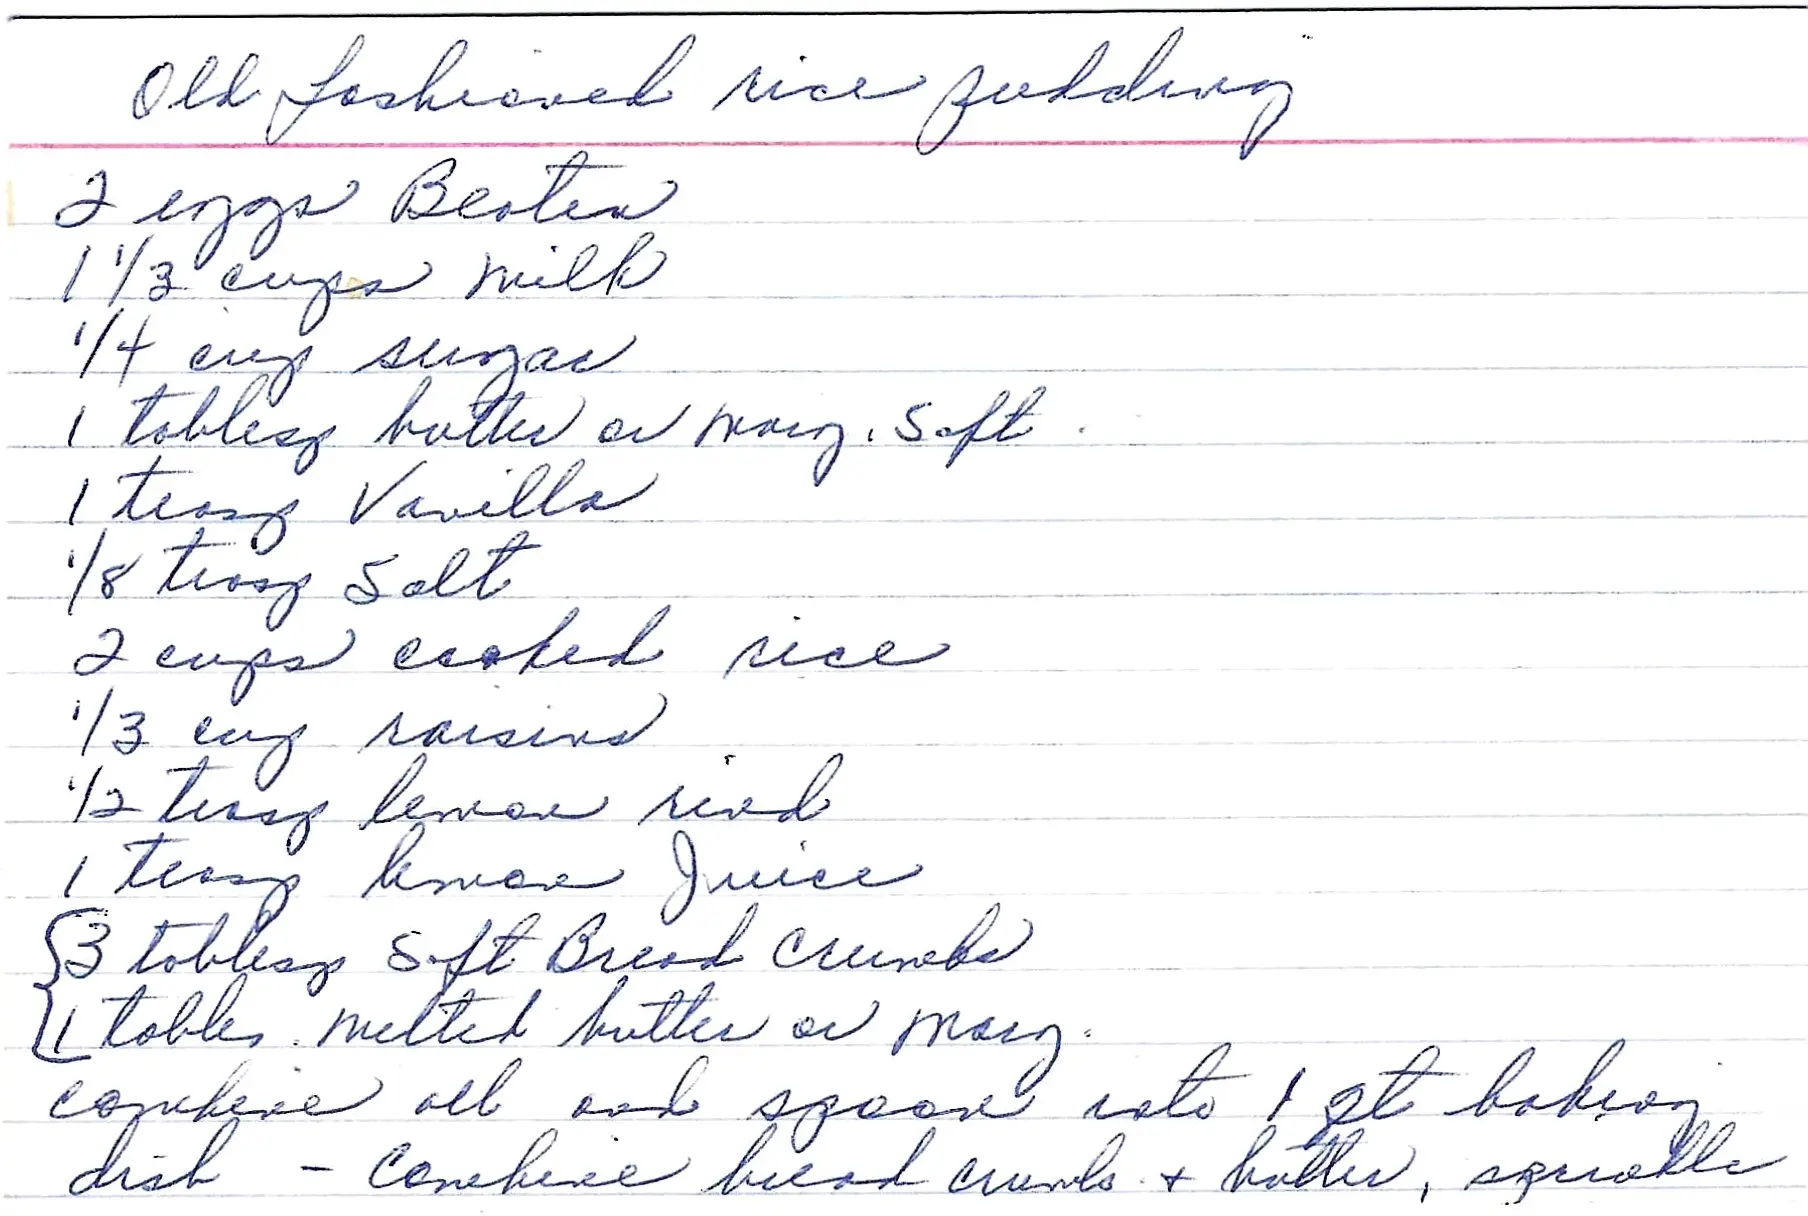 Old fashioned rice pudding
2 eggs Beaten
1 1/3 cups milk
1/4 cup sugar
1 tablesp butter or marg. Soft
1 teasp Vanilla
1/8 teasp Salt
2 cups cooked rice
1/3 cup raisins
1/2 teasp lemon rind
1 teasp lemon Juice
3 tablesp Soft Bread Crumbs
1 tables. melted butter or marg.
combine all and spoon into 1 qt baking
dish - Combine bread crumbs + butter, sprinkle